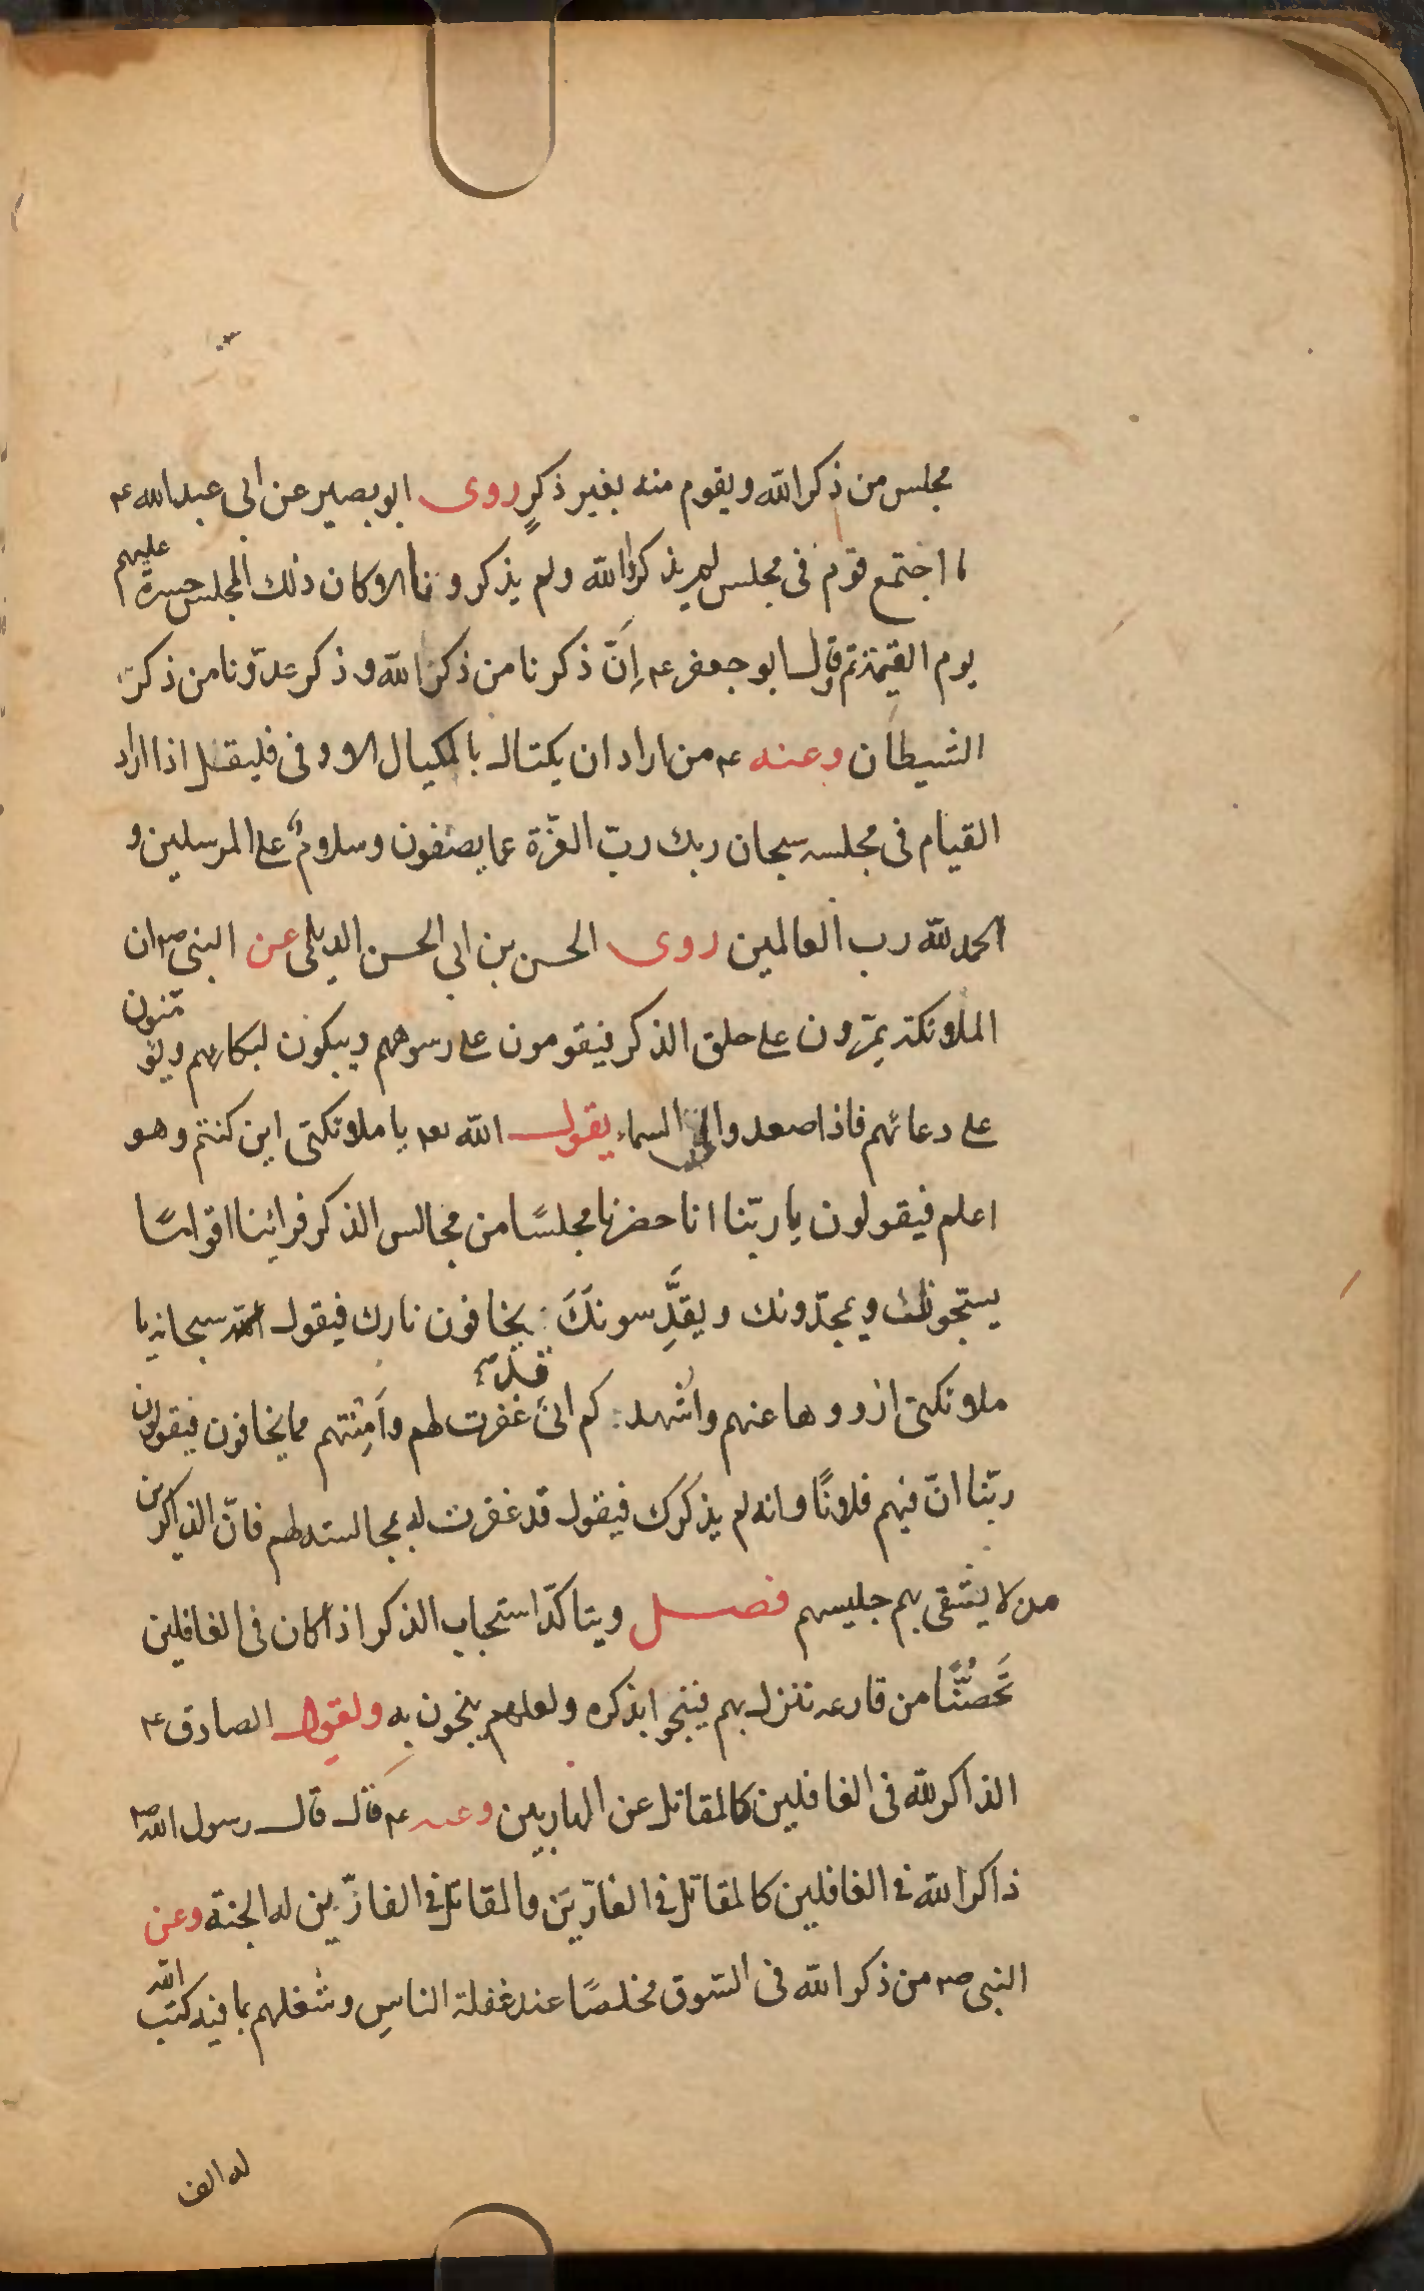 مجلس من ذكر الله ويقوم منه بغير ذكرٍ روى ابو بصير عن ابى عبد الله ع
ما اجتمع قوم فى مجلس لم يذكروا الله ولم يذكرونا الا كان ذلك المجلس حسرة عليهم
يوم القيمة ثم قال ابو جعفر ع اِنَّ ذكرنا من ذكر الله و ذكر عدوّنا من ذكر
الشيطان وعنه ع من اراد ان يكتال بالمكيال الاوفى فليقل اذا اراد
القيام فى مجلسه سبحان ربك ربّ العزّة عما يصفون وسلامٌ على المرسلين و
الحمد لله رب العالمين روى الحسن بن ابي الحسن الديلمى عن النبى ص ان
الملائكة يمرّون على حلق الذكر فيقومون على رسوهم ويبكون لبكائهم ويؤمّنون
على دعائهم فاذا صعدوا الى السماء يقول الله تع يا ملائكتى اين كنتم وهو
اعلم فيقولون يا ربّنا انا حضرنا مجلسًا من مجالس الذكر فرائينا اقوامًا
يسبّحونك ويمجّدونك ويقدِّسونكَ يخافون نارك فيقول الله سبحانه يا
ملائكتى ازووها عنهم واُشهدكم انىّ قد غفرت لهم وآمنتهم مما يخافون فيقولون
ربّنا انّ فيهم فلانًا وانه لم يذكرك فيقول قد غفرت له بمجالسته لهم فانّ الذاكرين
من لا يشقى بهم جليسهم فصل ويتاكّد استحباب الذكر اذا كان فى الغافلين
تَحصُّنًا من قارعه تنزل بهم فينجوا بذكره ولعلهم ينجون به ولقول الصادق ع
الذاكر لله فى الغافلين كالمقاتل عن الهاربين وعنه ع قال قال رسول الله ص
ذاكر الله فى الغافلين كالمقاتل فى الفارّين والمقاتل فى الفارّين له الجنة وعن
النبى ص من ذكر الله فى السّوق مخلصًا عند غفلة الناسِ وشُغلهم بما فيه كتب الله
له الف